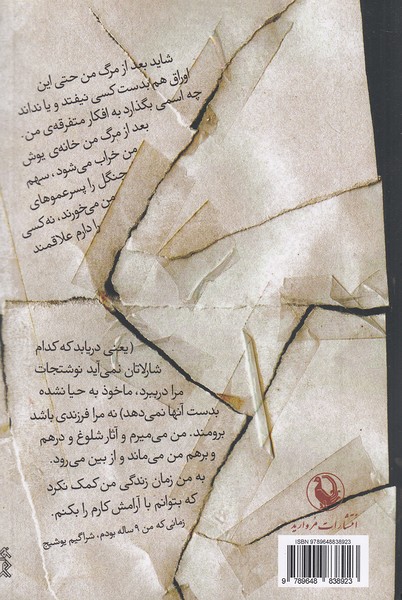 شاید بعد از مرگ من حتی این
اوراق هم بدست کسی نیفتد و یا نداند
چه اسمی بگذارد به افکار متفرقه‌ی من.
بعد از مرگ من خانه‌ی یوش
من خراب می‌شود، سهم
جنگل را پسرعموهای
من می‌خورند، نه کسی
را دارم علاقمند
(یعنی دریابد که کدام
شارلاتان نمی‌آید نوشتجات
مرا دربرد، ماخوذ به حیا نشده
بدست آنها نمی‌دهد) نه مرا فرزندی باشد
برومند. من می‌میرم و آثار شلوغ و درهم
و برهم من می‌ماند و از بین می‌رود.
به من زمان زندگی من کمک نکرد
که بتوانم با آرامش کارم را بکنم.
زمانی که من ۹ ساله بودم، شراگیم یوشیج
انتشارات مروارید
ISBN: 9789648838923
9 789648 838923